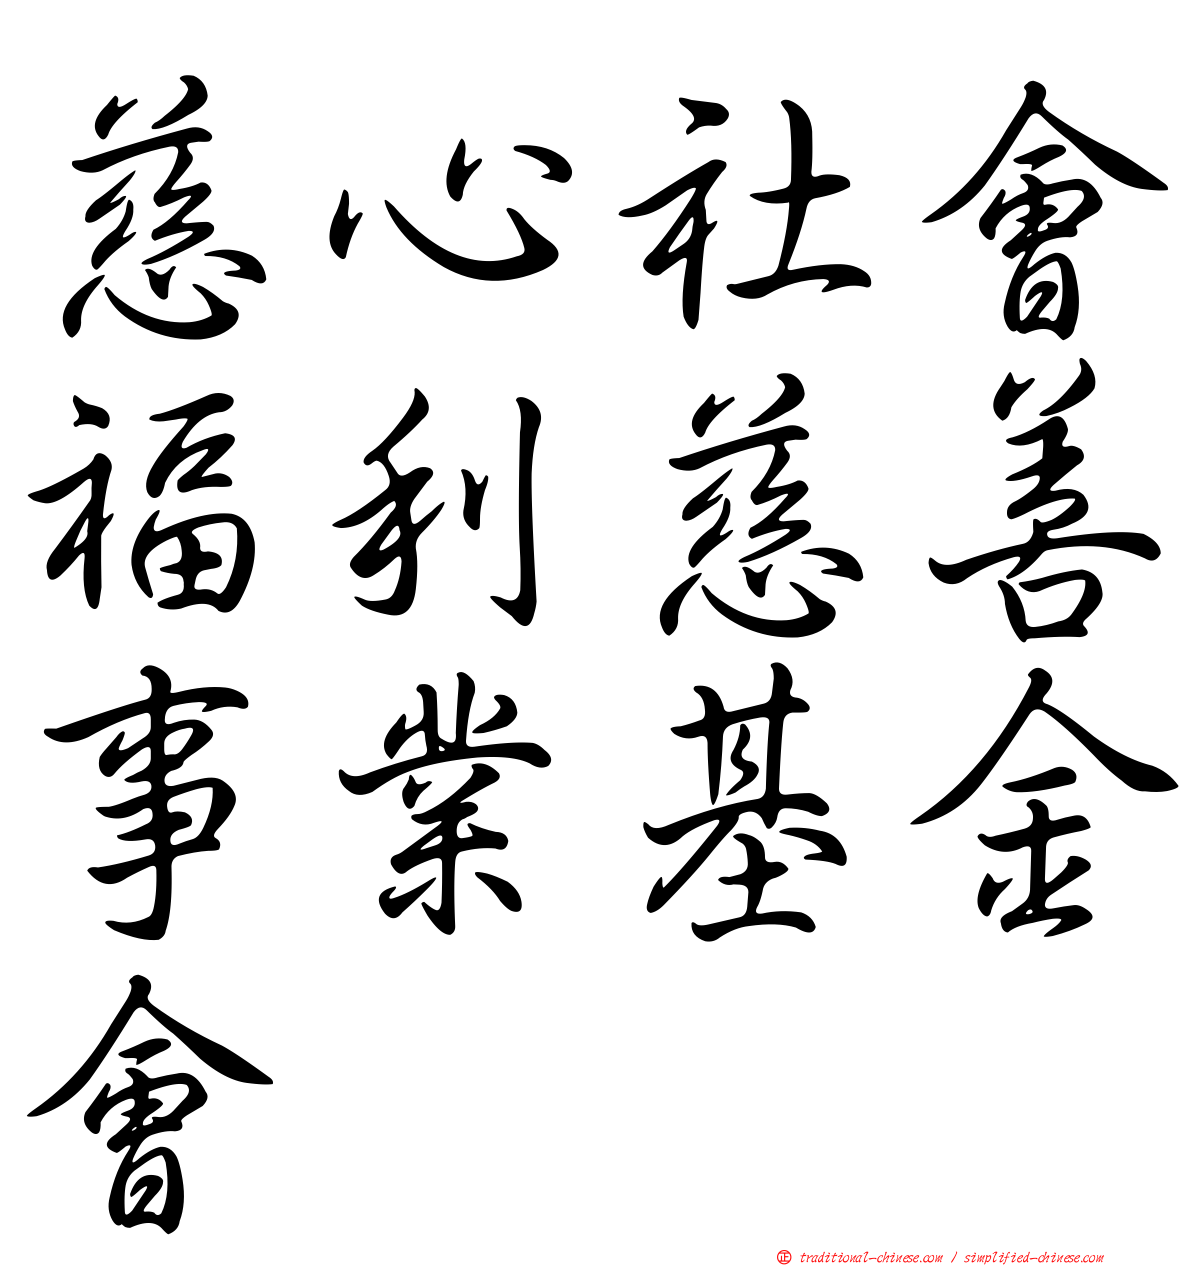 慈心社會
福利慈善
事業基金
會
㊣ traditional-chinese.com / simplified-chinese.com